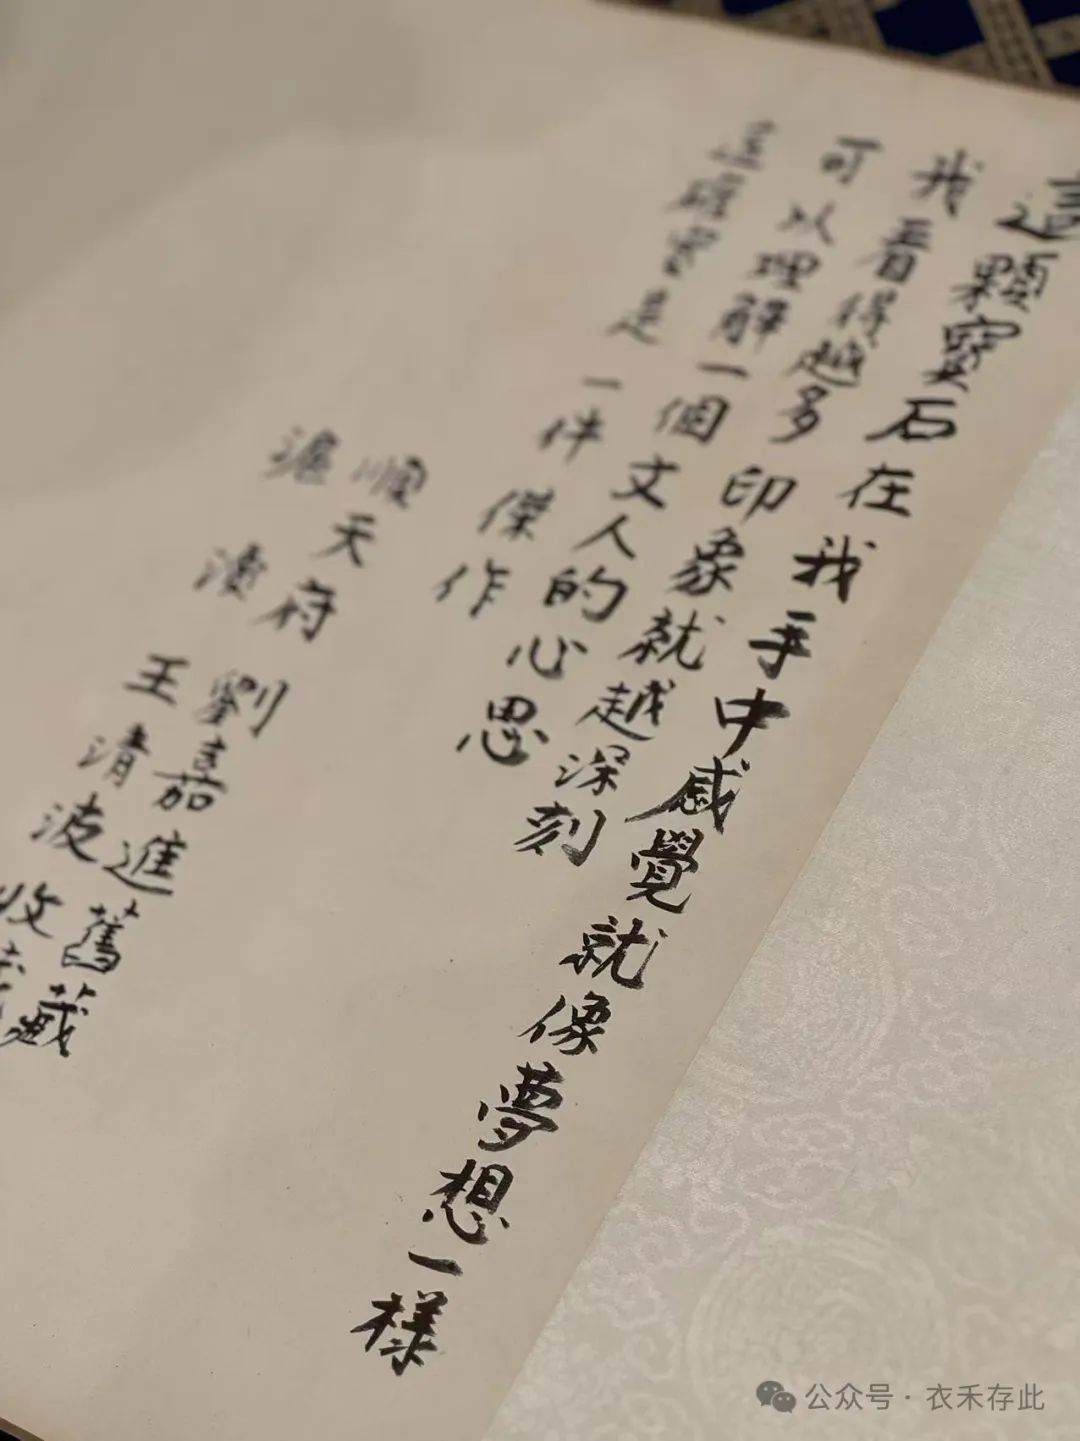 這顆寶石在我手中感覺就像夢想一樣
我看得越多印象就越深刻
可以理解一個文人的心思
這確實是一件傑作
順天府 劉嘉進舊藏
滬瀆 王清波收藏
公众号·衣禾存此